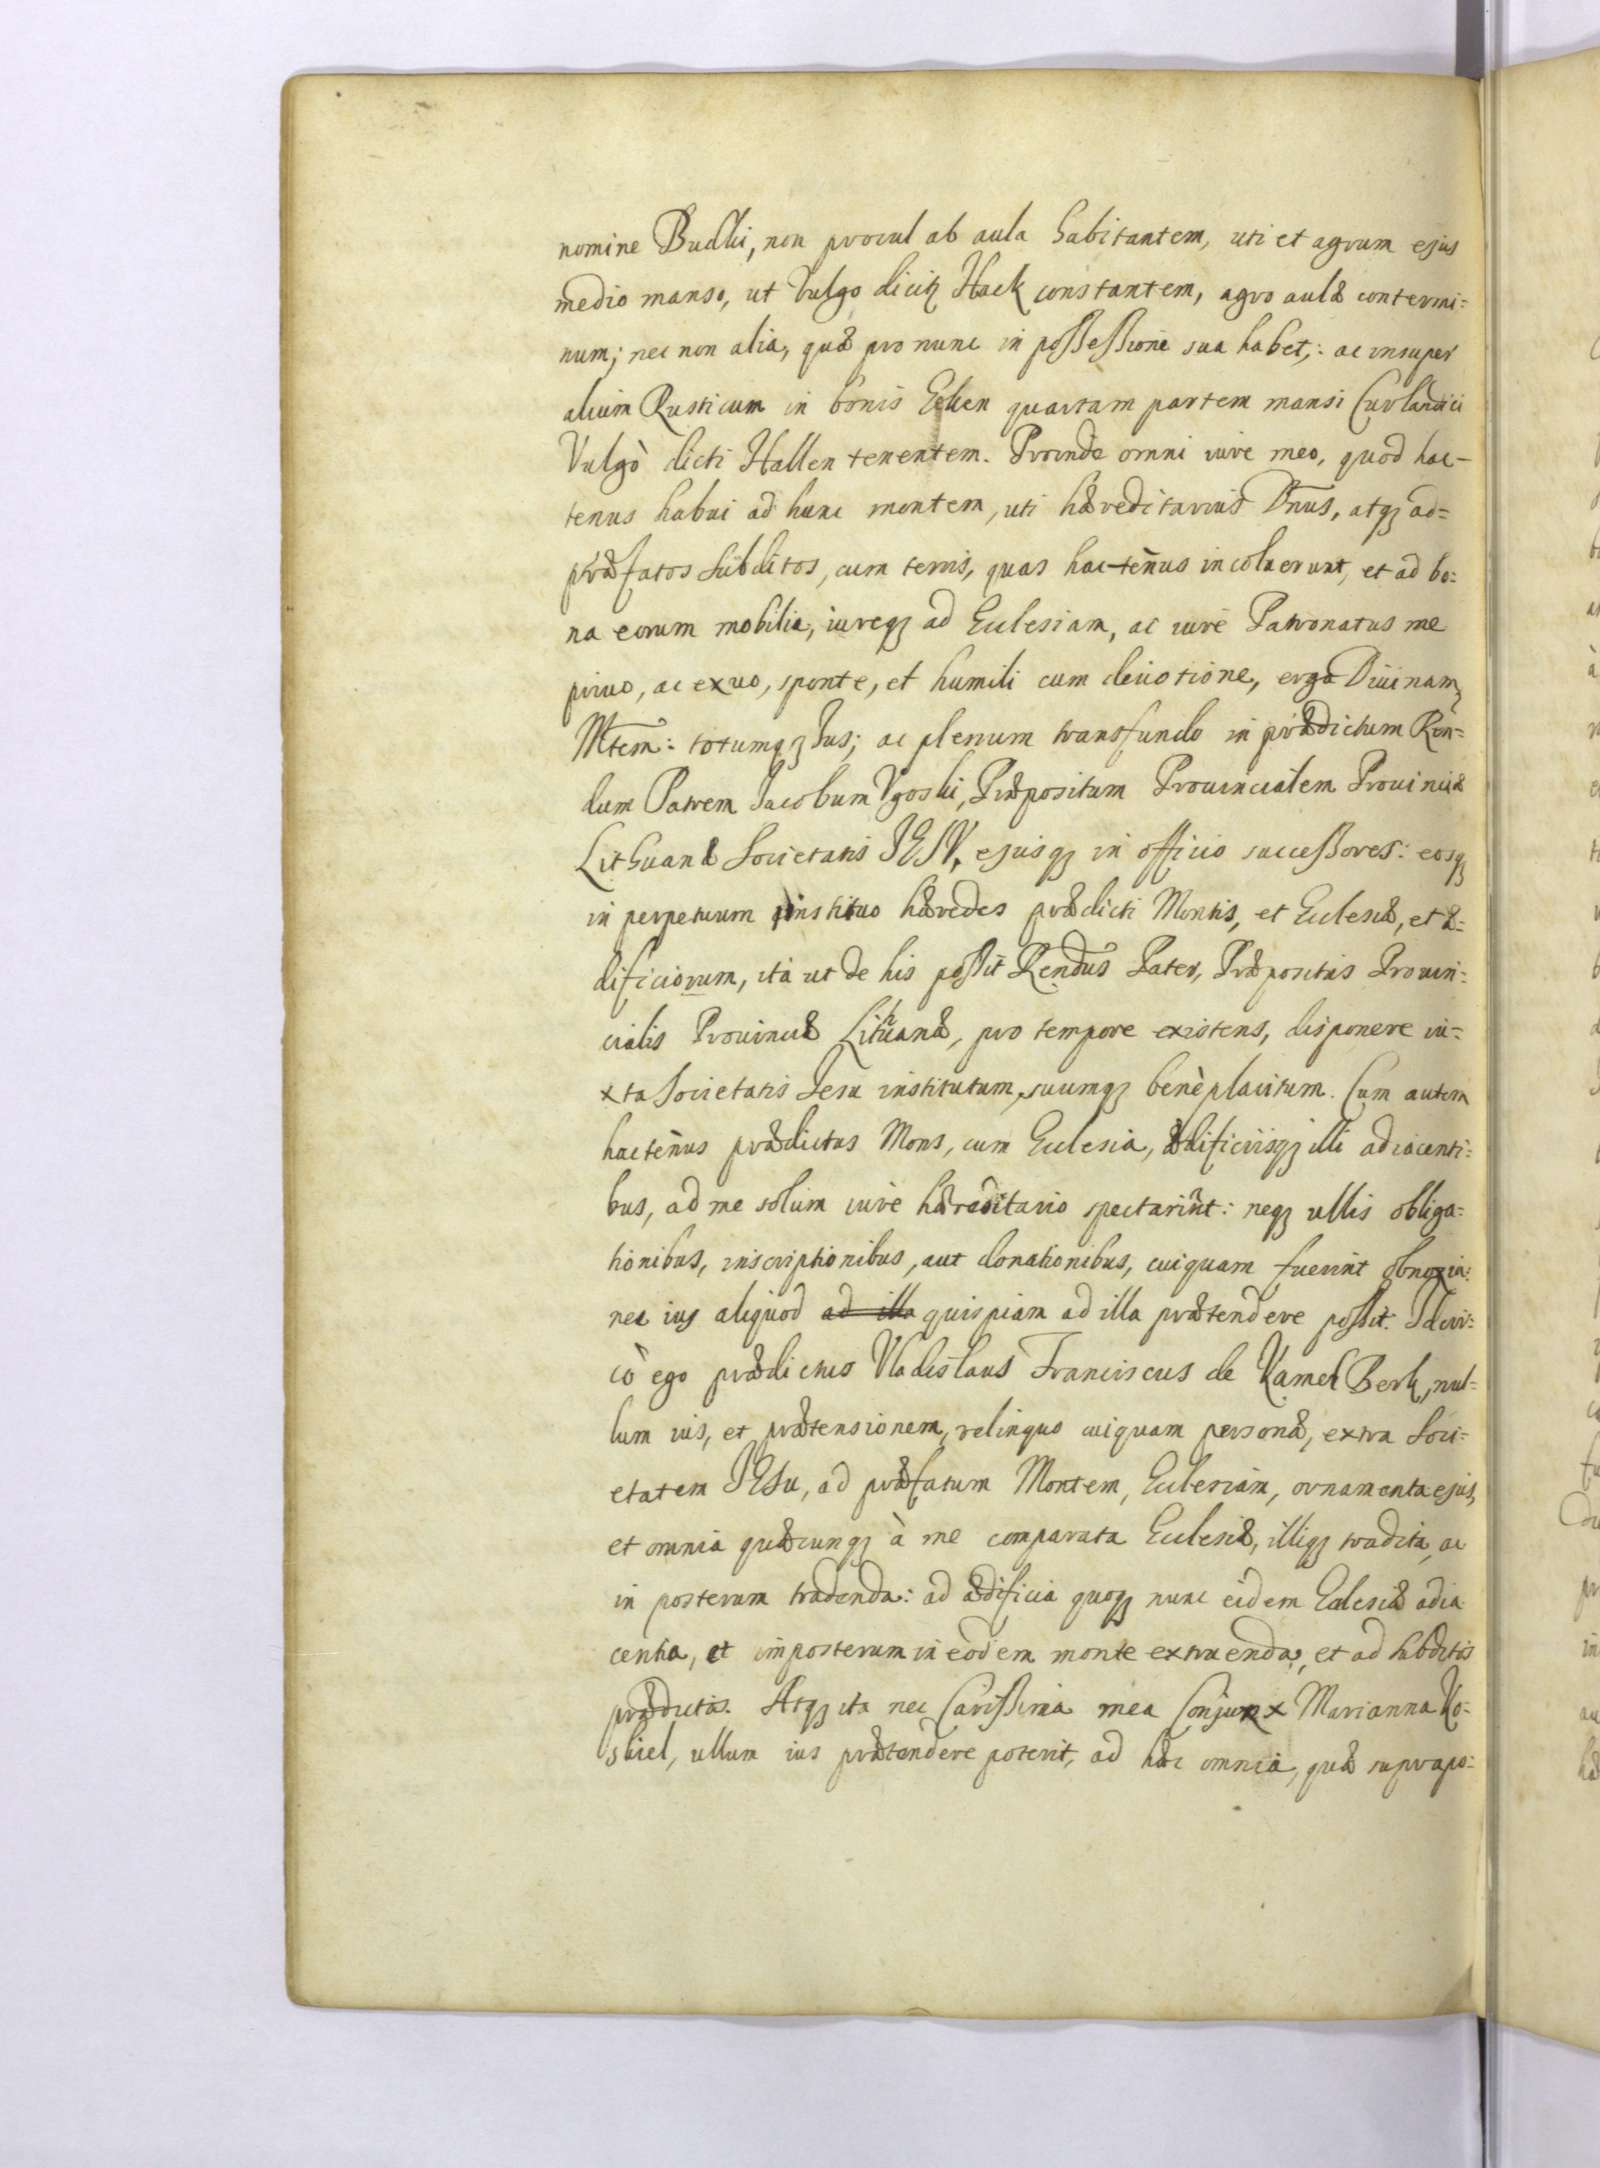 nomine Budki, non procul ab aula habitantem, uti et agrum ejus
medio manso, ut Vulgo dicitꝫ Hack constantem, agro aulæ contermi=
num; nec non alia, quæ pro nunc in possessione sua habet;: ac insuper
alium Rusticum in bonis Ecken quartam partem mansi Curlandici
Vulgò dicti Hallen tenentem. Proindè omni iure meo, quod hac-
tenus habui ad hunc montem, uti hæreditarius Dnus, atqꝫ ad=
præfatos subditos, cum terris, quas hactenus incoluerunt, et ad bo=
na eorum mobilia, iureqꝫ ad Ecclesiam, ac iure Patronatus me
privo, ac exuo, sponte, et humili cum deuotione, erga Diuinam
Mtem: totumqꝫ Ius; ac plenum transfundo in prædictum Ren=
dum Patrem Jacobum Ugoski, Præpositum Prouincialem Prouinciæ
Lithuanæ Societatis JESV, ejusqꝫ in officio successores: eosqꝫ
in perpetuum instituo hæredes prædicti Montis, et Ecclesiæ, et æ=
dificiorum, ità ut de his possit Rendus Pater, Præpositus Prouin=
cialis Prouinciæ Lithuanæ, pro tempore existens, disponere iu=
xta Societatis Jesu institutum, suumqꝫ benèplacitum. Cum autem
hactenus prædictus Mons, cum Ecclesia, ædificiisqꝫ illi adiacenti=
bus, ad me solum iure hæreditario spectarint: neqꝫ ullis obliga=
tionibus, inscriptionibus, aut donationibus, cuiquam fuerint obnoxia:
nec ius aliquod ad illa quispiam ad illa prætendere possit. Idcir=
cò ego prædictus Vladislaus Franciscus de Kamel Berk, nul=
lum ius, et prætensionem, relinquo cuiquam personæ, extra Soci=
etatem JESu, ad præfatum Montem, Ecclesiam, ornamenta ejus,
et omnia quæcunqꝫ à me comparata Ecclesiæ, illiqꝫ tradita, ac
in posterum tradenda: ad ædificia quoqꝫ nunc eidem Eclesiæ adia
centia, et imposterum in eodem monte extruenda, et ad subditos
prædictos. Atqꝫ ita nec Carissima mea Conjunx Marianna Ko=
skiel, ullum ius prætendere poterit, ad hæc omnia, quæ suprapo=